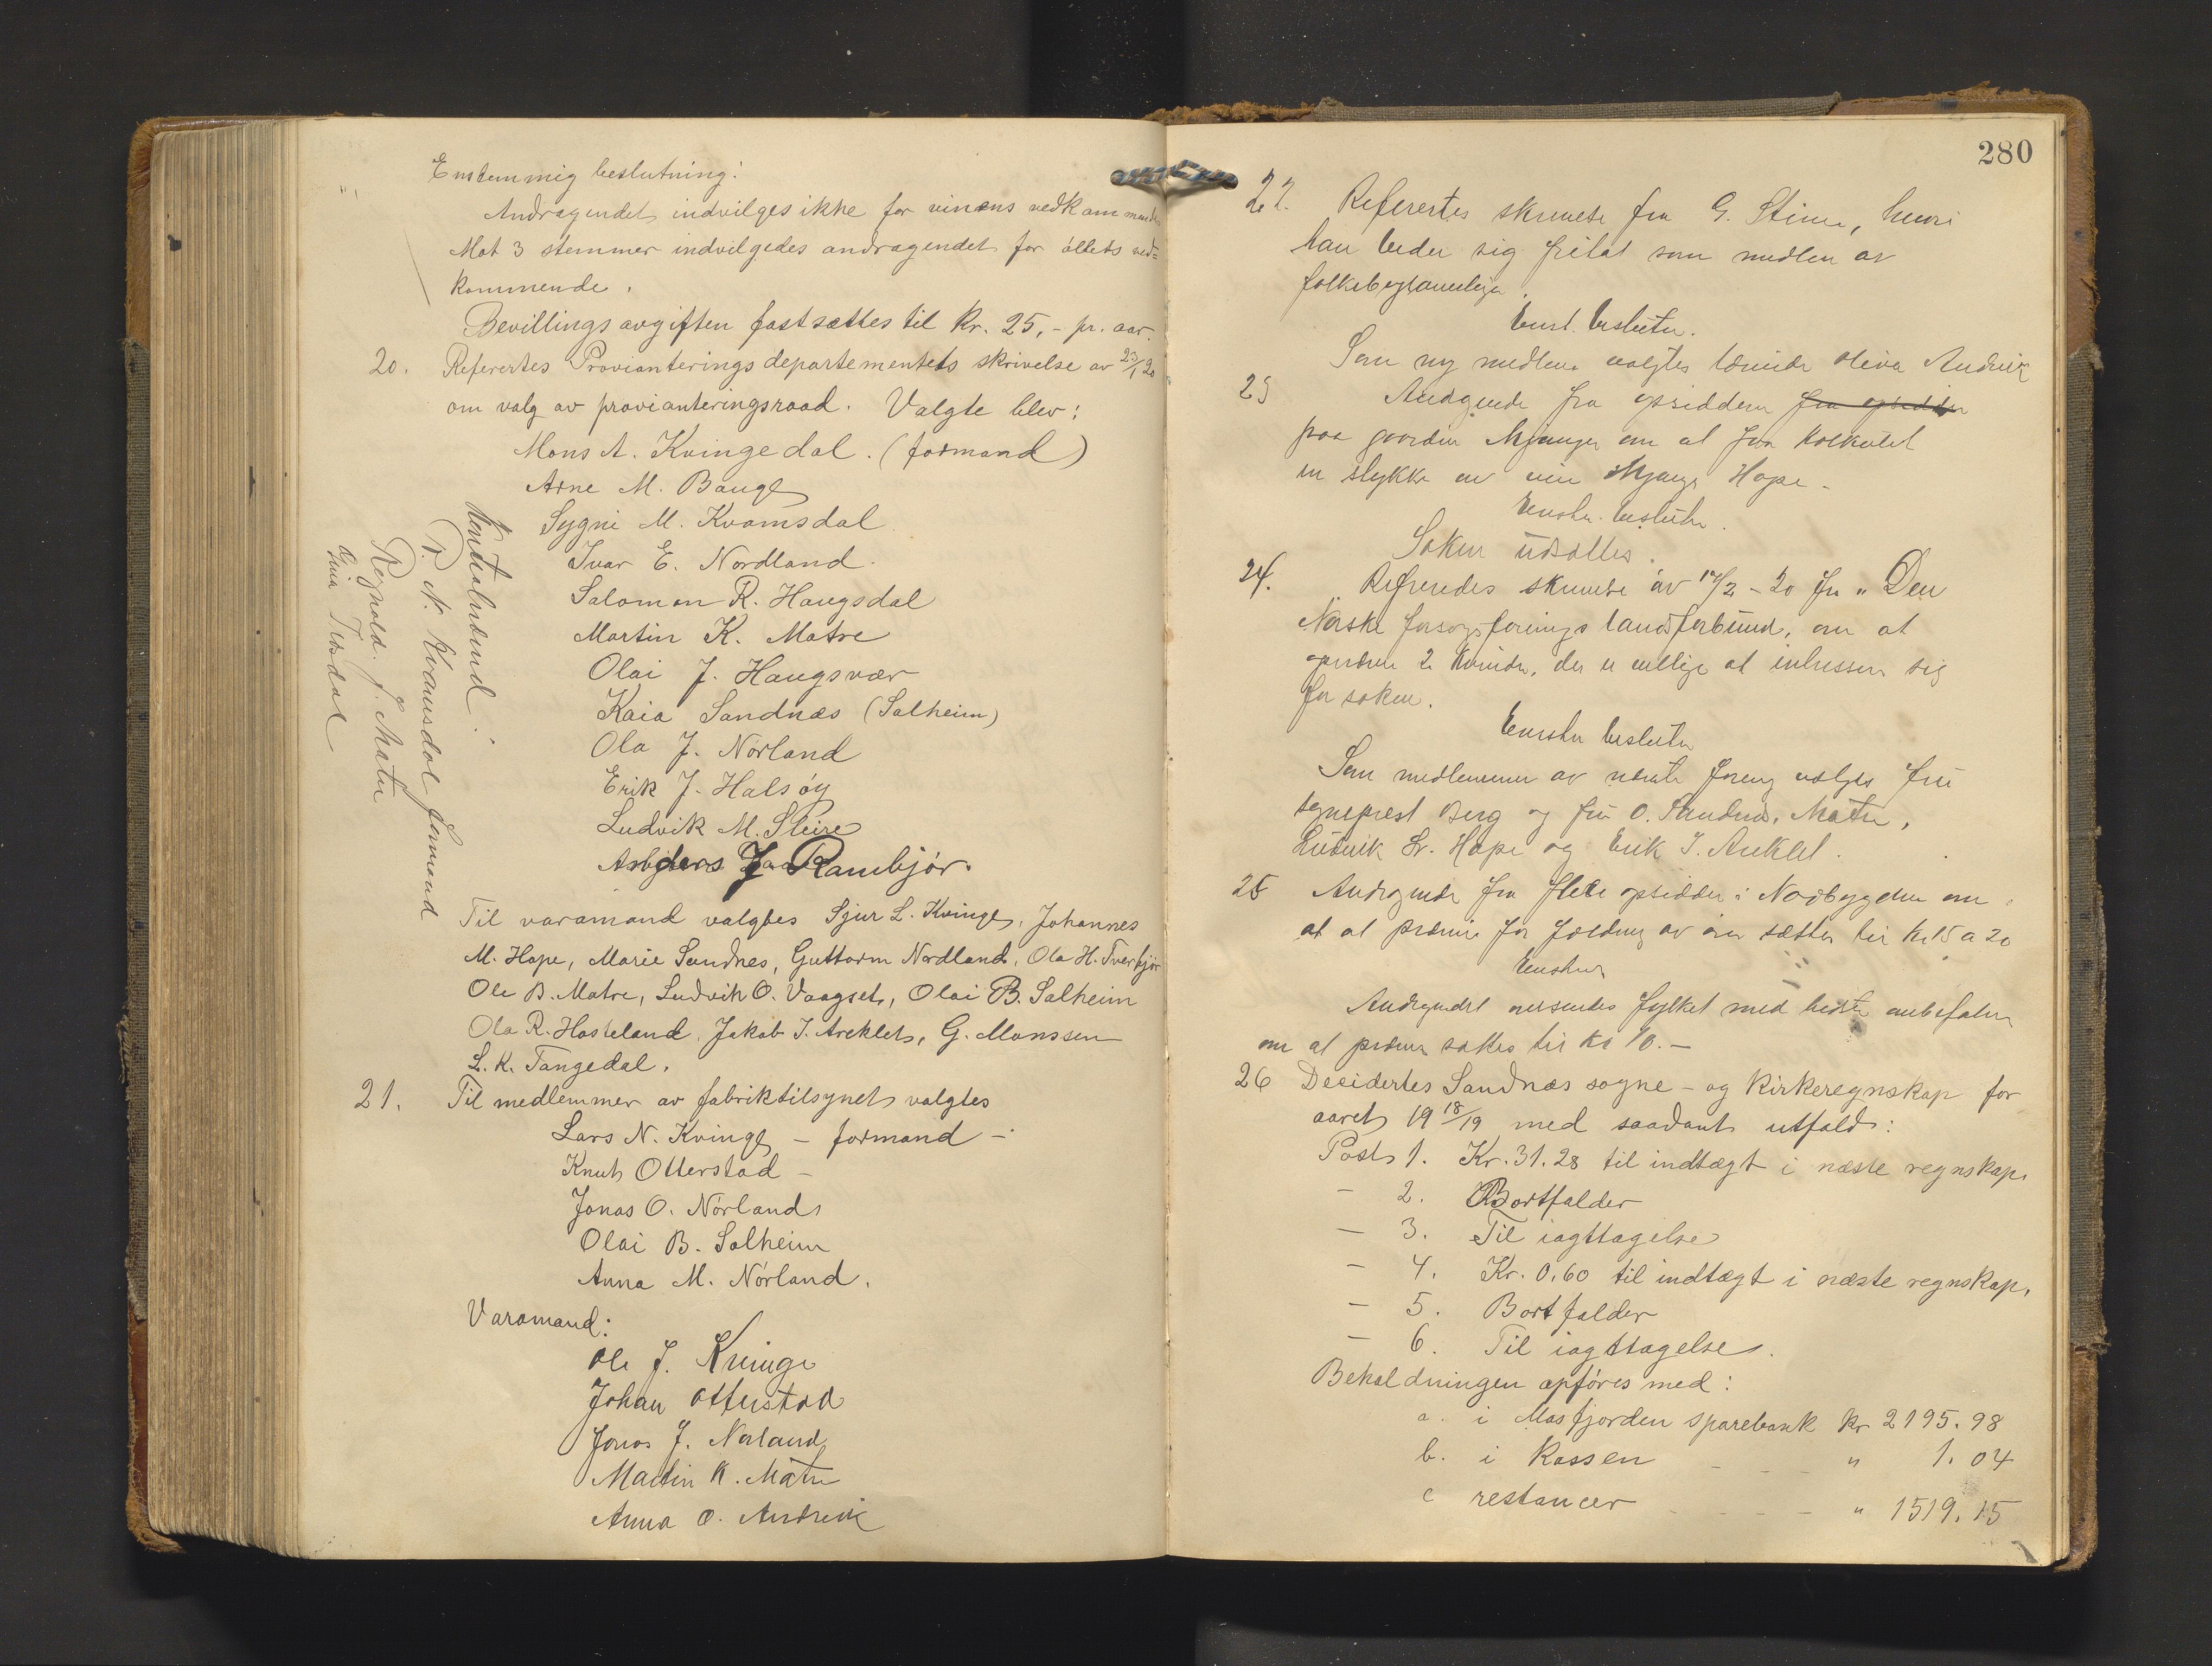 Enstemmig beslutning:
Andragendet indvilges ikke for vinens vedkommende
Mot 3 stemmer indvilgedes andragendet for øllets ved-
kommende.
Bevillingsavgiften fastsættes til kr. 25,- pr. aar.
20. Refertes Provianteringsdepartementets skrivelse av 23/1 20
om valg av provianteringsraad. Valgte blev:
Mons A. Kvingedal. (formand)
Arne M. Bauge
Sygni M. Kvamsdal
Ivar E. Nordland.
Salomon R. Haugsdal
Martin K. Matre
Olai J. Haugsvær
Kaia Sandnæs (Salheim)
Ola J. Nørland
Erik J. Halsøy
Ludvik M. Sleire
J. Rambjør.
P. N. Kvamsdal formand
Reynold. J. Matre
Gina Tisdal
Til varamænd valgtes Sjur L. Kvinge, Johannes
M. Hope, Marie Sandnes, Guttorm Nordland, Ola H. Tverbjør
Ole B. Matre, Ludvik O. Vaagset, Olai B. Salheim
Ola R. Hosteland, Jakob I. Areklet, G. Monssen
L. K. Tangedal.
21. Til medlemmer av fabriktilsynet valgtes
Lars N. Kvinge - formand -
Knut Otterstad -
Jonas O. Nørland
Olai B. Solheim
Anna M. Nørland.
Varamænd:
Ole J. Kvinge
Johan Otterstad
Jonas J. Nørland
Martin K. Matre
Anna O. Andvik
280
22. Refertes skrivelse fra G. Steine, hvori
han beder sig fritat som medlem av
Enst. beslutn.
Som ny medlem valgtes lærerinde Oliva Andvik
23 Andragende fra opsiddern fra opsiddern
paa gaarden Mjanger om at faa
en stykke av vein Mjanger Hope -
Enstem. beslutn.
Saken utsættes.
24. Refereredes skrivelse av 14/2 - 20 fra "Den
Norske forsorgsforenings landsforbund, om at
opnævne 2 kvinder, der er villige at interessere sig
for saken.
Enstem beslutn
Som medlemmer av nævnte forening valgtes fru
sogneprest Berg og fru O. Sandnæs, Matre,
Ludvik Hope og Erik I. Areklet.
25 Andragende fra flere opsiddere i Nordbygden om
at præmie for fældning av ørn sættes til kr 15 a 20
Enstem
Andragendet oversendes fylket med bedste anbefaling
om at præmien sættes til kr 10.-
26 Decidertes Sandnæs sogne- og kirkeregnskap for
aaret 19 18/19 med saadant utfald:
Post 1. Kr. 31.28 til indtægt i næste regnskap.
- 2. Bortfalder
- 3. Til iagttagelse
- 4. Kr. 0,60 til indtægt i næste regnskap.
- 5. Bortfalder
- 6. Til iagttagelse.
Beholdningen opføres med:
a. i Masfjorden sparebank kr 2195.98
b. i Kassen - - - " 1.04
c restancer - - - - " 1519.15